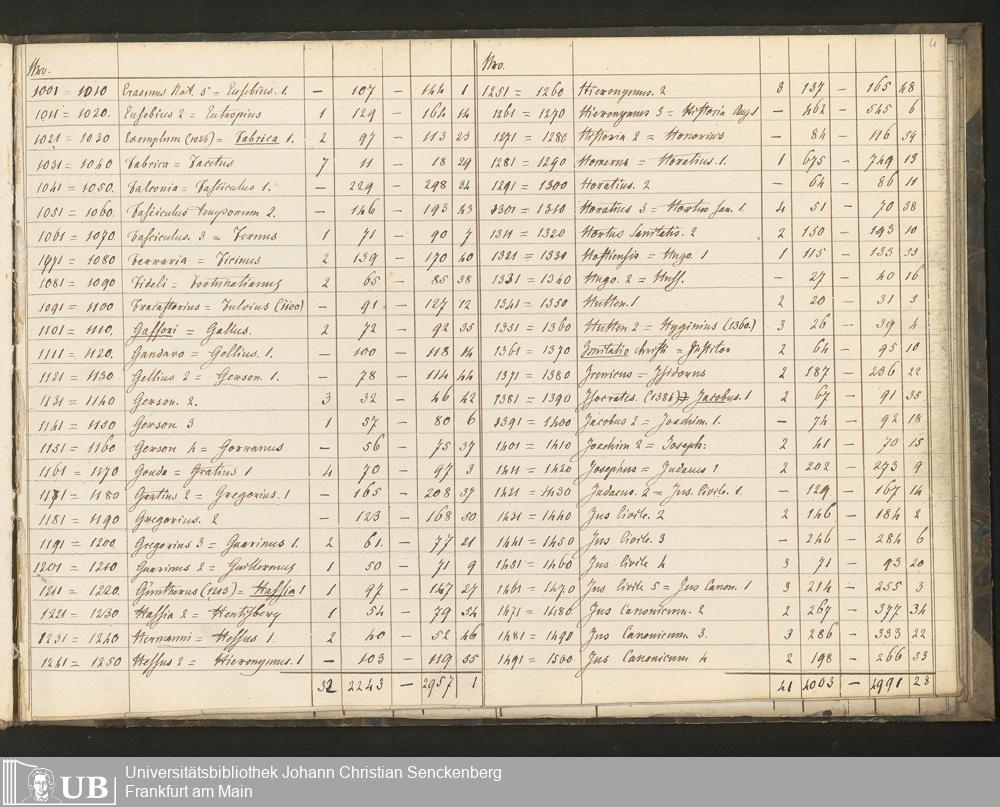 4
Nro.
1001 = 1010 Erasmus Rot. 5 = Eusebius. 1. — 107 — 144 1
1011 = 1020. Eusebius 2 = Eutropius 1 129 — 164 14
1021 = 1030 Exemplum (1026) = Fabrica 1. 2 97 — 113 23
1031 = 1040 Fabrica = Facetus 7 11 — 18 29
1041 = 1050. Falconia = Fasciculus 1. — 229 — 298 34
1051 = 1060. Fasciculus temporum 2. — 146 — 193 43
1061 = 1070. Fasciculus. 3 = Fernus 1 71 — 90 7
1071 = 1080 Ferraria = Ficinus 2 139 — 170 40
1081 = 1090 Fideli = Fortunatianus 2 65 — 85 38
1091 = 1100 Fracastorius = Fulvius (1100) — 91 — 127 12
1101 = 1110. Gaffori = Gallus. 2 72 — 92 35
1111 = 1120. Gandavo = Gellius. 1. — 100 — 118 14
1121 = 1130 Gellius 2 = Gerson. 1. — 78 — 114 44
1131 = 1140 Gerson. 2. 3 32 — 46 42
1141 = 1150 Gerson 3 1 57 — 80 6
1151 = 1160 Gerson 4 = Gorranus. — 56 — 75 37
1161 = 1170 Gouda = Gratius 1 4 70 — 97 3
1171 = 1180 Gratius 2 = Gregorius. 1 — 165 — 208 37
1181 = 1190 Gregorius. 2 — 123 — 168 50
1191 = 1200. Gregorius 3 = Guarinus 1. 2 61. — 77 21
1201 = 1210 Guarinus 2 = Guilermus 1 50 — 71 9
1211 = 1220. Güntherus (1213) = Hassia 1 1 97 — 147 27
1221 = 1230 Hassia 2 = Hentisberg 1 54 — 79 54
1231 = 1240 Hermanni = Hessus 1. 2 40 — 52 46
1241 = 1250 Hessus 2 = Hieronymus. 1 — 103 — 119 55
32 2243 — 2957 1
Nro.
1251 = 1260 Hieronymus. 2 3 137 — 165 48
1261 = 1270 Hieronymus 3 = Historia Aug 1 — 462 — 545 6
1271 = 1280 Historia 2 = Honorius — 84 — 116 59
1281 = 1290 Homerus = Horatius. 1. 1 675 — 749 13
1291 = 1300 Horatius. 2 — 64 — 86 11
1301 = 1310 Horatius 3 = Hortus San. 1. 4 51 — 70 38
1311 = 1320 Hortus Sanitatis. 2 2 150 — 193 10
1321 = 1330 Hostiensis = Hugo. 1 1 115 — 133 53
1331 = 1340 Hugo. 2 = Huss. — 27 — 40 16
1341 = 1350 Hutten. 1 2 20 — 31 5
1351 = 1360 Hutten 2 = Hyginius (1360.) 3 26 — 39 4
1361 = 1370 Imitatio Christi = Institor 2 64 — 95 10
1371 = 1380 Irenicus = Isidorus 2 187 — 236 22
1381 = 1390 Isocrates. (1385) = Jacobus. 1 2 67 — 91 35
1391 = 1400 Jacobus 2 = Joachim. 1. — 74 — 92 18
1401 = 1410 Joachim 2 = Joseph: 2 41 — 70 15
1411 = 1420 Josephus = Judaeus 1 2 202 — 273 9
1421 = 1430 Judaeus. 2 = Jus. Civile. 1. — 129 — 167 14
1431 = 1440 Jus Civile. 2 2 146 — 184 2
1441 = 1450 Jus Civile. 3 — 246 — 284 6
1451 = 1460 Jus Civile 4 3 71 — 93 20
1461 = 1470 Jus Civile 5 = Jus Canon. 1 3 214 — 255 3
1471 = 1480 Jus Canonicum. 2 2 267 — 377 34
1481 = 1490 Jus Canonicum. 3. 3 286 — 333 22
1491 = 1500 Jus Canonicum 4 2 198 — 266 33
41 4003 — 4991 28
UB
Universitätsbibliothek Johann Christian Senckenberg
Frankfurt am Main